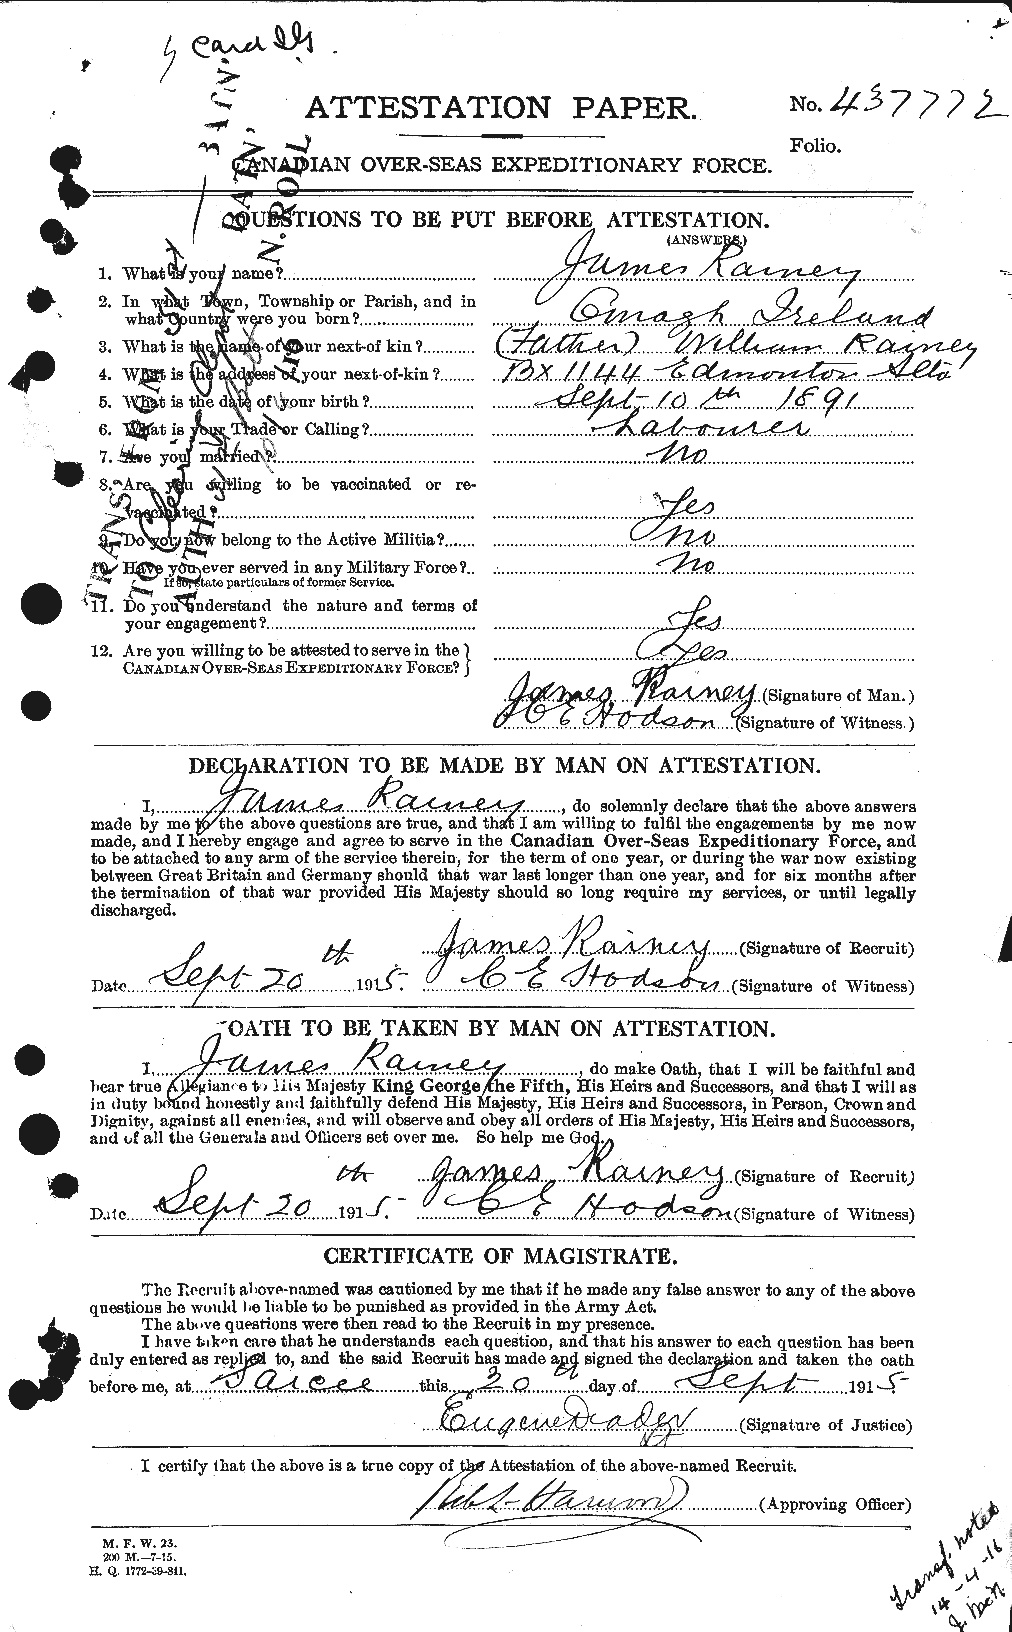 Card Is
ATTESTATION PAPER.
No. 437772
Folio.
CANADIAN OVER-SEAS EXPEDITIONARY FORCE.
QUESTIONS TO BE PUT BEFORE ATTESTATION.
(ANSWERS)
1. What is your name? James Rainey
2. In what Town, Township or Parish, and in
what Country were you born? Omagh Ireland
3. What is the name of your next-of kin? (Father) William Rainey
4. What is the address of your next-of-kin? Bx 1144 Edmonton Alta
5. What is the date of your birth? Sept 10th 1891
6. What is your Trade or Calling? Labourer
7. Are you married? No
8. Are you willing to be vaccinated or re-
vaccinated? Yes
9. Do you now belong to the Active Militia? No
10. Have you ever served in any Military Force? No
If so, state particulars of former Service.
11. Do you understand the nature and terms of
your engagement? Yes
12. Are you willing to be attested to serve in the
CANADIAN OVER-SEAS EXPEDITIONARY FORCE? Yes
James Rainey (Signature of Man.)
C E Hodson (Signature of Witness.)
DECLARATION TO BE MADE BY MAN ON ATTESTATION.
I, James Rainey, do solemnly declare that the above answers
made by me to the above questions are true, and that I am willing to fulfil the engagements by me now
made, and I hereby engage and agree to serve in the Canadian Over-Seas Expeditionary Force, and
to be attached to any arm of the service therein, for the term of one year, or during the war now existing
between Great Britain and Germany should that war last longer than one year, and for six months after
the termination of that war provided His Majesty should so long require my services, or until legally
discharged.
James Rainey (Signature of Recruit)
Date Sept 20th 1915. C E Hodson (Signature of Witness)
OATH TO BE TAKEN BY MAN ON ATTESTATION.
I, James Rainey, do make Oath, that I will be faithful and
bear true Allegiance to His Majesty King George the Fifth, His Heirs and Successors, and that I will as
in duty bound honestly and faithfully defend His Majesty, His Heirs and Successors, in Person, Crown and
Dignity, against all enemies, and will observe and obey all orders of His Majesty, His Heirs and Successors,
and of all the Generals and Officers set over me. So help me God.
James Rainey (Signature of Recruit)
Date Sept 20th 1915. C E Hodson (Signature of Witness)
CERTIFICATE OF MAGISTRATE.
The Recruit above-named was cautioned by me that if he made any false answer to any of the above
questions he would be liable to be punished as provided in the Army Act.
The above questions were then read to the Recruit in my presence.
I have taken care that he understands each question, and that his answer to each question has been
duly entered as replied to, and the said Recruit has made and signed the declaration and taken the oath
before me, at Sarcee this 20th day of Sept 1915
Eugene (Signature of Justice)
I certify that the above is a true copy of the Attestation of the above-named Recruit.
Harwood (Approving Officer)
M. F. W. 23.
200 M.—7-15.
H. Q. 1772-39-841.
Transf. noted
14-4-16